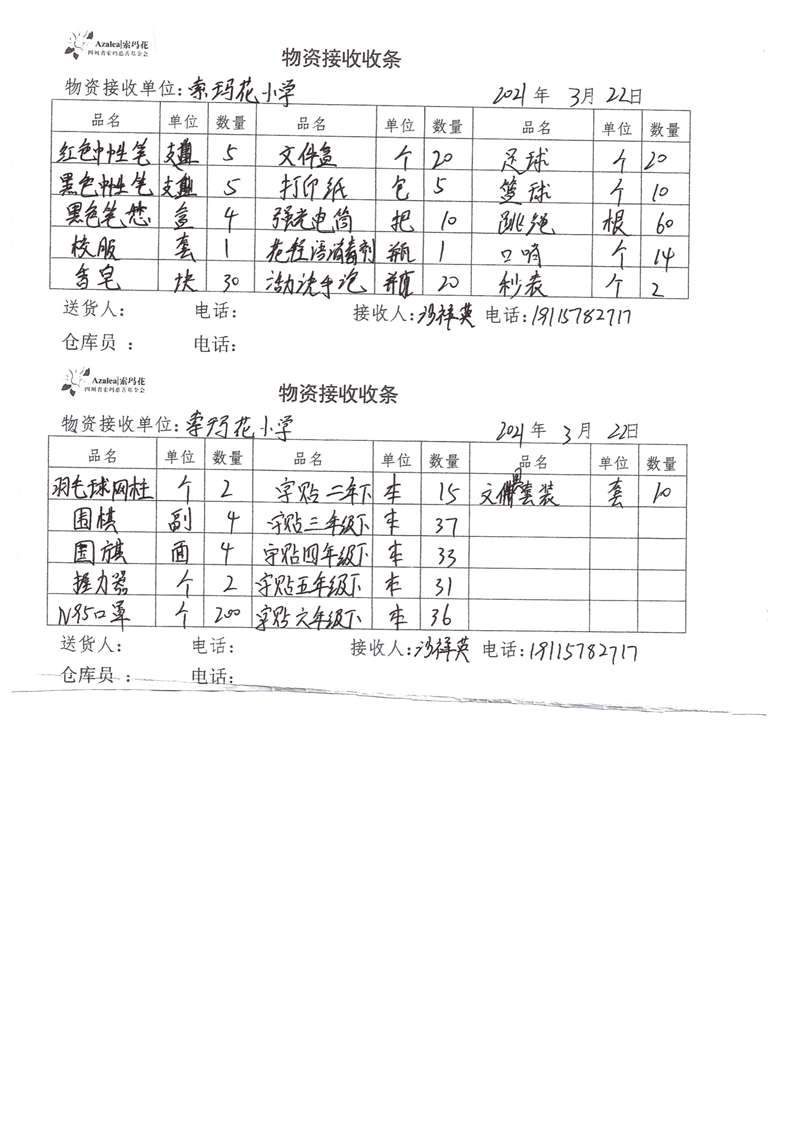 Azalea|索玛花
四川省索玛慈善基金会
物资接收收条
物资接收单位:索玛花小学 2021年 3月 22日
品名 单位 数量 品名 单位 数量 品名 单位 数量
红色中性笔 支 5 文件盒 个 20 足球 个 20
黑色中性笔 支 5 打印纸 包 5 篮球 个 10
黑色笔 盒 4 强光电筒 把 10 跳绳 根 60
校服 套 1 消毒剂 瓶 1 口哨 个 14
香皂 块 30 洗手泡 瓶 20 秒表 个 2
送货人: 电话: 接收人:沙祥英 电话:19115782717
仓库员 : 电话:
Azalea|索玛花
四川省索玛慈善基金会
物资接收收条
物资接收单位:索玛花小学 2021年 3月 22日
品名 单位 数量 品名 单位 数量 品名 单位 数量
羽毛球网柱 个 2 字贴二年下 本 15 文具套装 套 10
围棋 副 4 字贴三年级下 本 37
国旗 面 4 字贴四年级下 本 33
握力器 个 2 字贴五年级下 本 31
N95口罩 个 200 字贴六年级下 本 36
送货人: 电话: 接收人:沙祥英 电话:19115782717
仓库员 : 电话: